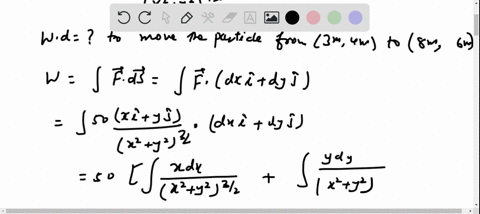 W.d = ? to move the particle from (3m, 4m) to (8m, 6m)
W = ∫ F⃗.dS⃗ = ∫ F⃗ . (dx î + dy ĵ)
= ∫ 50 (x î + y ĵ) / (x² + y²)^{3/2} . (dx î + dy ĵ)
= 50 [ ∫ x dx / (x² + y²)^{3/2} + ∫ y dy / (x² + y²)